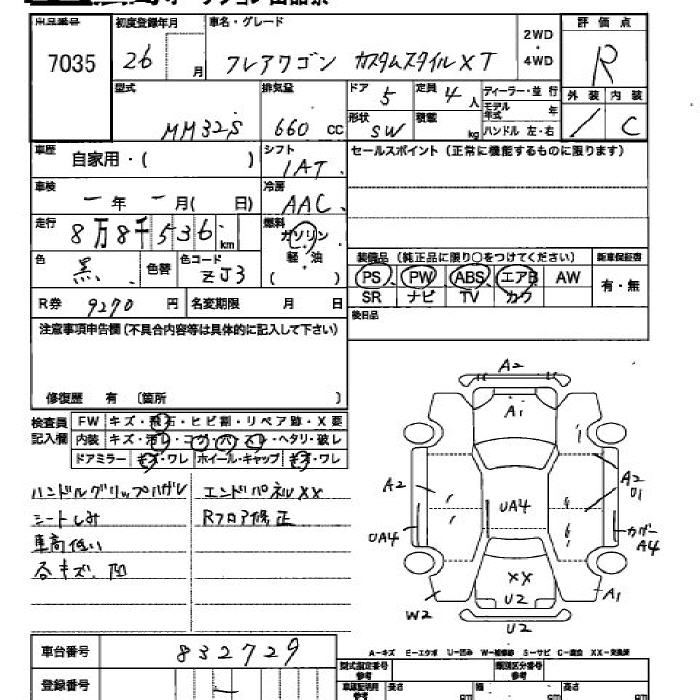 出品番号 初度登録年月 車名・グレード 2WD・4WD 評価点
7035 26 月 フレアワゴン カスタムスタイルXT R
型式 排気量 ドア 5 定員 4人 ディーラー・並行 外装 内装
MM32S 660 CC 形状 SW 積載 kg モデル年式 年 ハンドル 左・右 / C
車歴 自家用・( ) シフト IAT セールスポイント(正常に機能するものに限ります)
車検 ー年 ー月( 日) 冷房 AAC
走行 8万8千536km 燃料 ガソリン・軽・油 ( )
色 黒 色替 色コード ZJ3 装備品(純正品に限り○をつけてください) 新車保証書
PS PW ABS エアB AW 有・無
R券 9270円 名変期限 月 日 SR ナビ TV カワ
注意事項申告欄(不具合内容等は具体的に記入して下さい) 後日品
修復歴 有 〔箇所 〕
検査員記入欄 FW キズ・飛石・ヒビ割・リペア跡・X要
内装 キズ・汚レ・コゲ・穴・スレ・ヘタリ・破レ
ドアミラー キズ・ワレ ホイール・キャップ キズ・ワレ
ハンドルグリップハガレ エンドパネルXX
シートしみ Rフロア修正
車高低い
各キズ、凹
A2
A1
A2
A2
U1
UA4
UA4
カバー
A4
XX
U2
A1
W2
U2
車台番号 832729
A-キズ E-エクボ U-凹み W-補修跡 S-サビ C-腐食 XX-交換済
登録番号 ー
型式指定番号 参考 類別区分番号 参考
車検証明用 参考 長さ cm 幅 cm 高さ cm